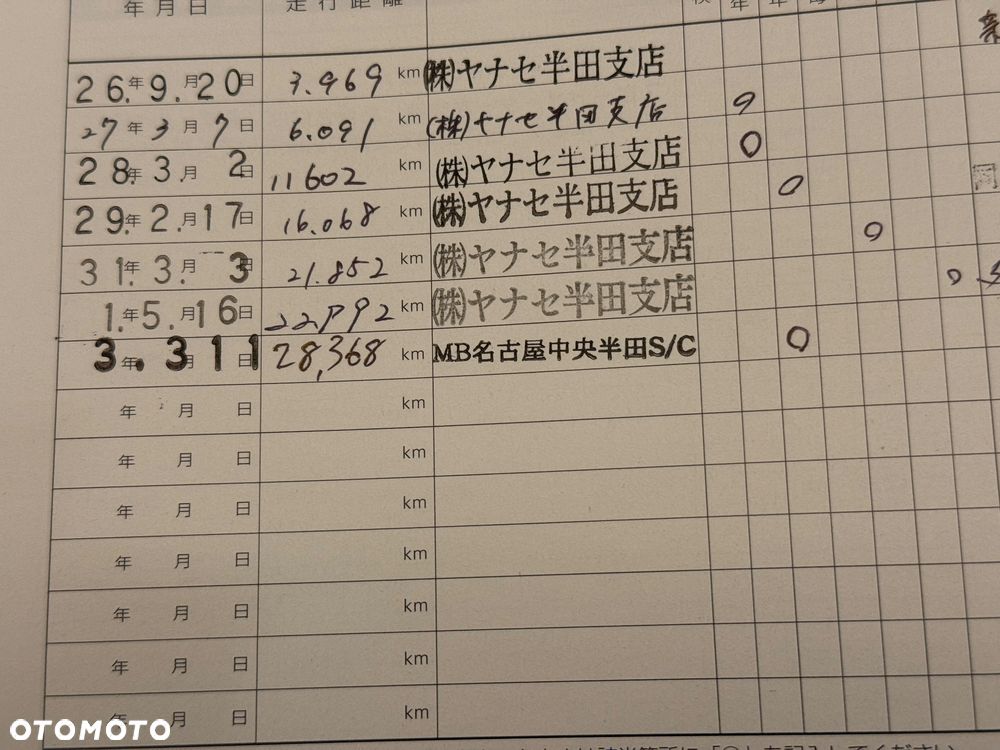 年月日 走行距離 年 年 毎
26年9月20日 3.969 km (株)ヤナセ半田支店
27年3月7日 6.091 km (株)ヤナセ半田支店
28年3月2日 11602 km (株)ヤナセ半田支店
29年2月17日 16.068 km (株)ヤナセ半田支店
31年3月3日 21.852 km (株)ヤナセ半田支店
1年5月16日 22992 km (株)ヤナセ半田支店
3年3月11日 28,368 km MB名古屋中央半田S/C
年 月 日 km
年 月 日 km
年 月 日 km
年 月 日 km
年 月 日 km
年 月 日 km
年 月 日 km
OTOMOTO